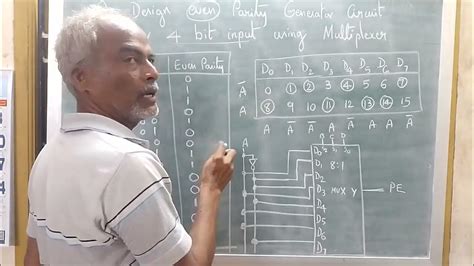 Design even Parity Generator Circuit
4 bit input using Multiplexer
Even Parity
0
1
1
0
1
0
0
1
1
0
0
1
0
1
1
0
D0 D1 D2 D3 D4 D5 D6 D7
A̅ 0 1 2 3 4 5 6 7
A 8 9 10 11 12 13 14 15
A A̅ A̅ A A̅ A A A̅
B C D
S2 S1 S0
A
D0
D1 8:1
D2
D3 MUX Y PE
D4
D5
D6
D7